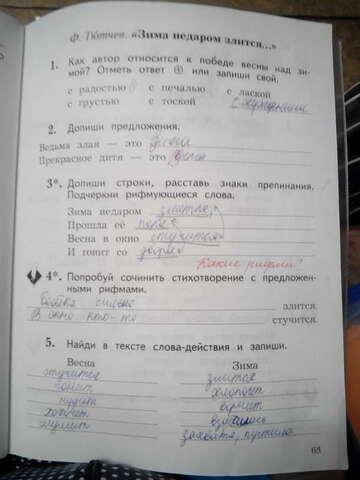 Ф. Тютчев. «Зима недаром злится...»
1. Как автор относится к победе весны над зи-
мой? Отметь ответ ⊕ или запиши свой.
с радостью с печалью с лаской
с грустью с тоской
2. Допиши предложения.
Ведьма злая — это зима
Прекрасное дитя — это весна
3*. Допиши строки, расставь знаки препинания.
Подчеркни рифмующиеся слова.
Зима недаром злится,
Прошла её пора
Весна в окно стучится
И гонит со двора
Какие рифмы?
4*. Попробуй сочинить стихотворение с предложен-
ными рифмами.
сильно злится.
В окно кто-то стучится.
5. Найди в тексте слова-действия и запиши.
Весна Зима
стучится злится
гонит хлопочет
нудит ворчит
хохочет взбесилась
шумит захватя, пустила
63